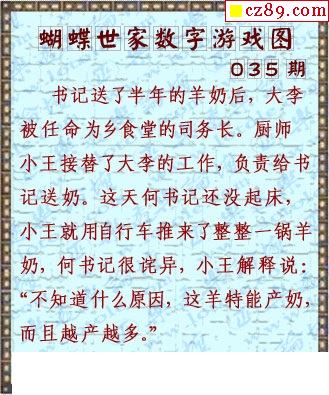 cz89.com
蝴蝶世家数字游戏图
035期
书记送了半年的羊奶后，大李
被任命为乡食堂的司务长。厨师
小王接替了大李的工作，负责给书
记送奶。这天何书记还没起床，
小王就用自行车推来了整整一锅羊
奶，何书记很诧异，小王解释说：
“不知道什么原因，这羊特能产奶，
而且越产越多。”